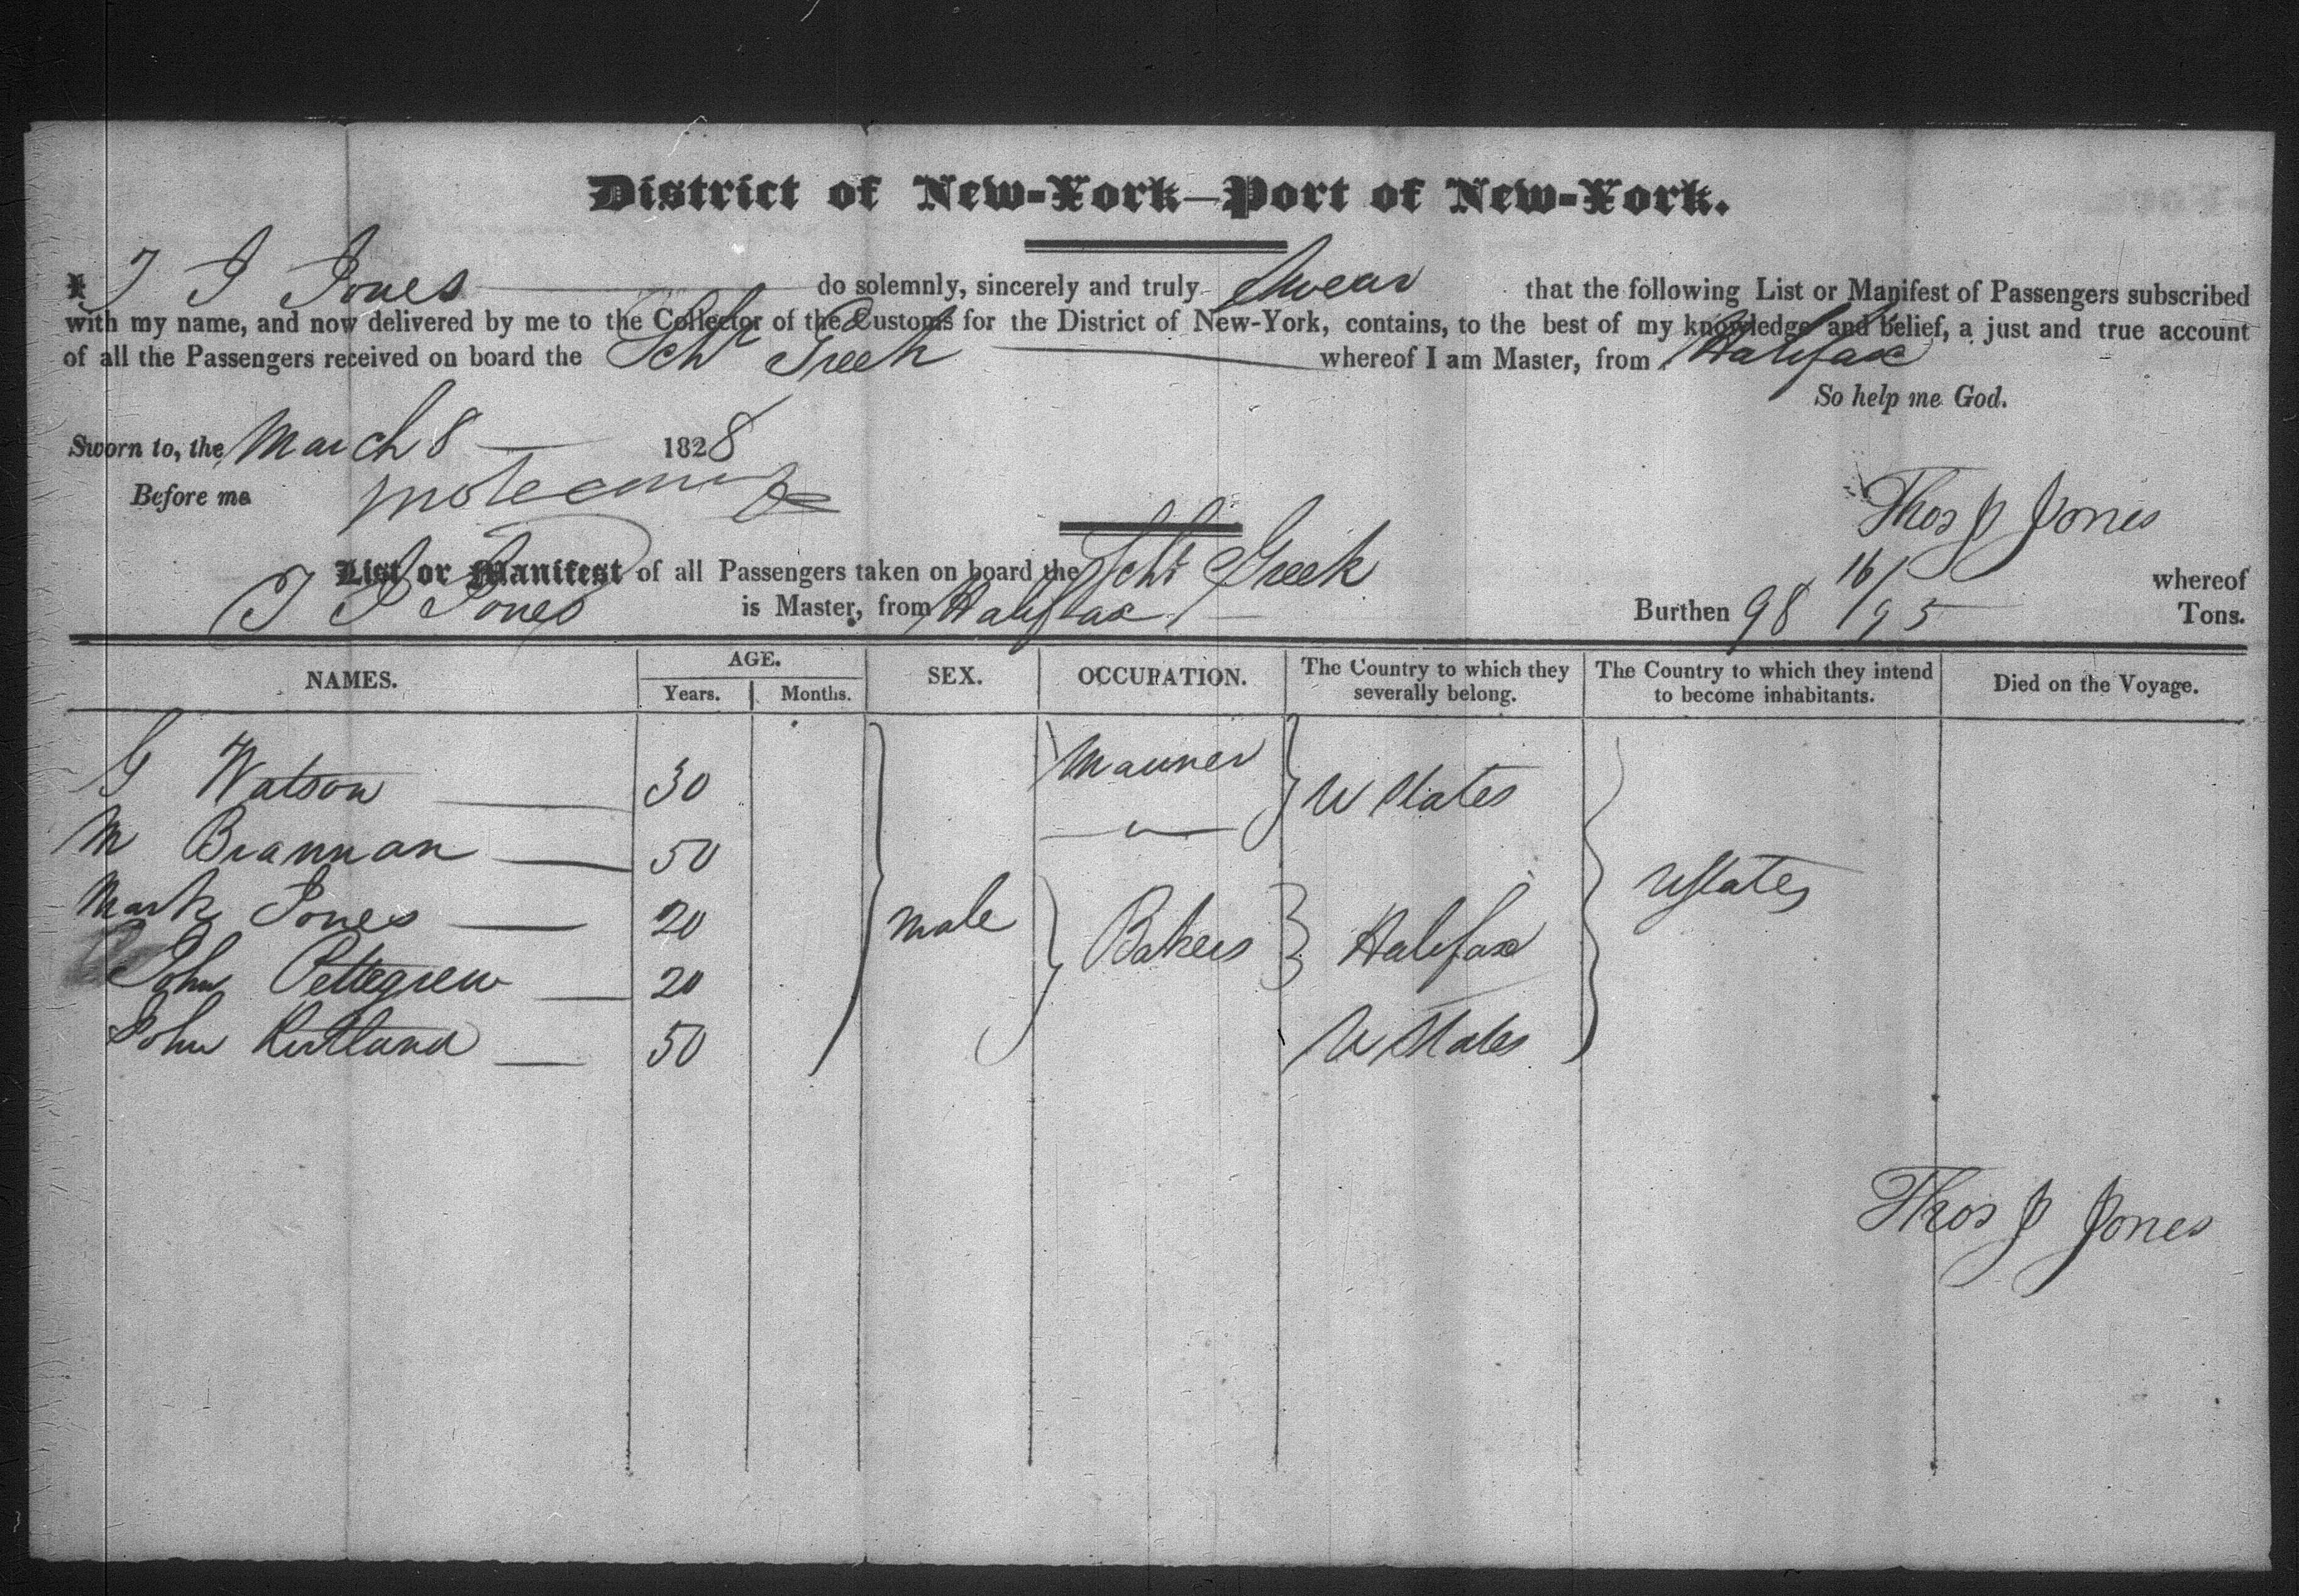 District of New-York—Port of New-York.
I T J Jones do solemnly, sincerely and truly swear that the following List or Manifest of Passengers subscribed
with my name, and now delivered by me to the Collector of the Customs for the District of New-York, contains, to the best of my knowledge and belief, a just and true account
of all the Passengers received on board the Schr Greek whereof I am Master, from Halifax
So help me God.
Sworn to, the March 8 1828
Before me
Thos J Jones
List or Manifest of all Passengers taken on board the Schr Greek whereof
T J Jones is Master, from Halifax Burthen 98 16/95 Tons.
NAMES. AGE. Years. Months. SEX. OCCUPATION. The Country to which they severally belong. The Country to which they intend to become inhabitants. Died on the Voyage.
G Watson 30 Mariner U States
M Brannan 50 "
Mark Jones 20 male Bakers Halifax U States
John Pettegrew 20
John Rutland 50 U States
Thos J Jones